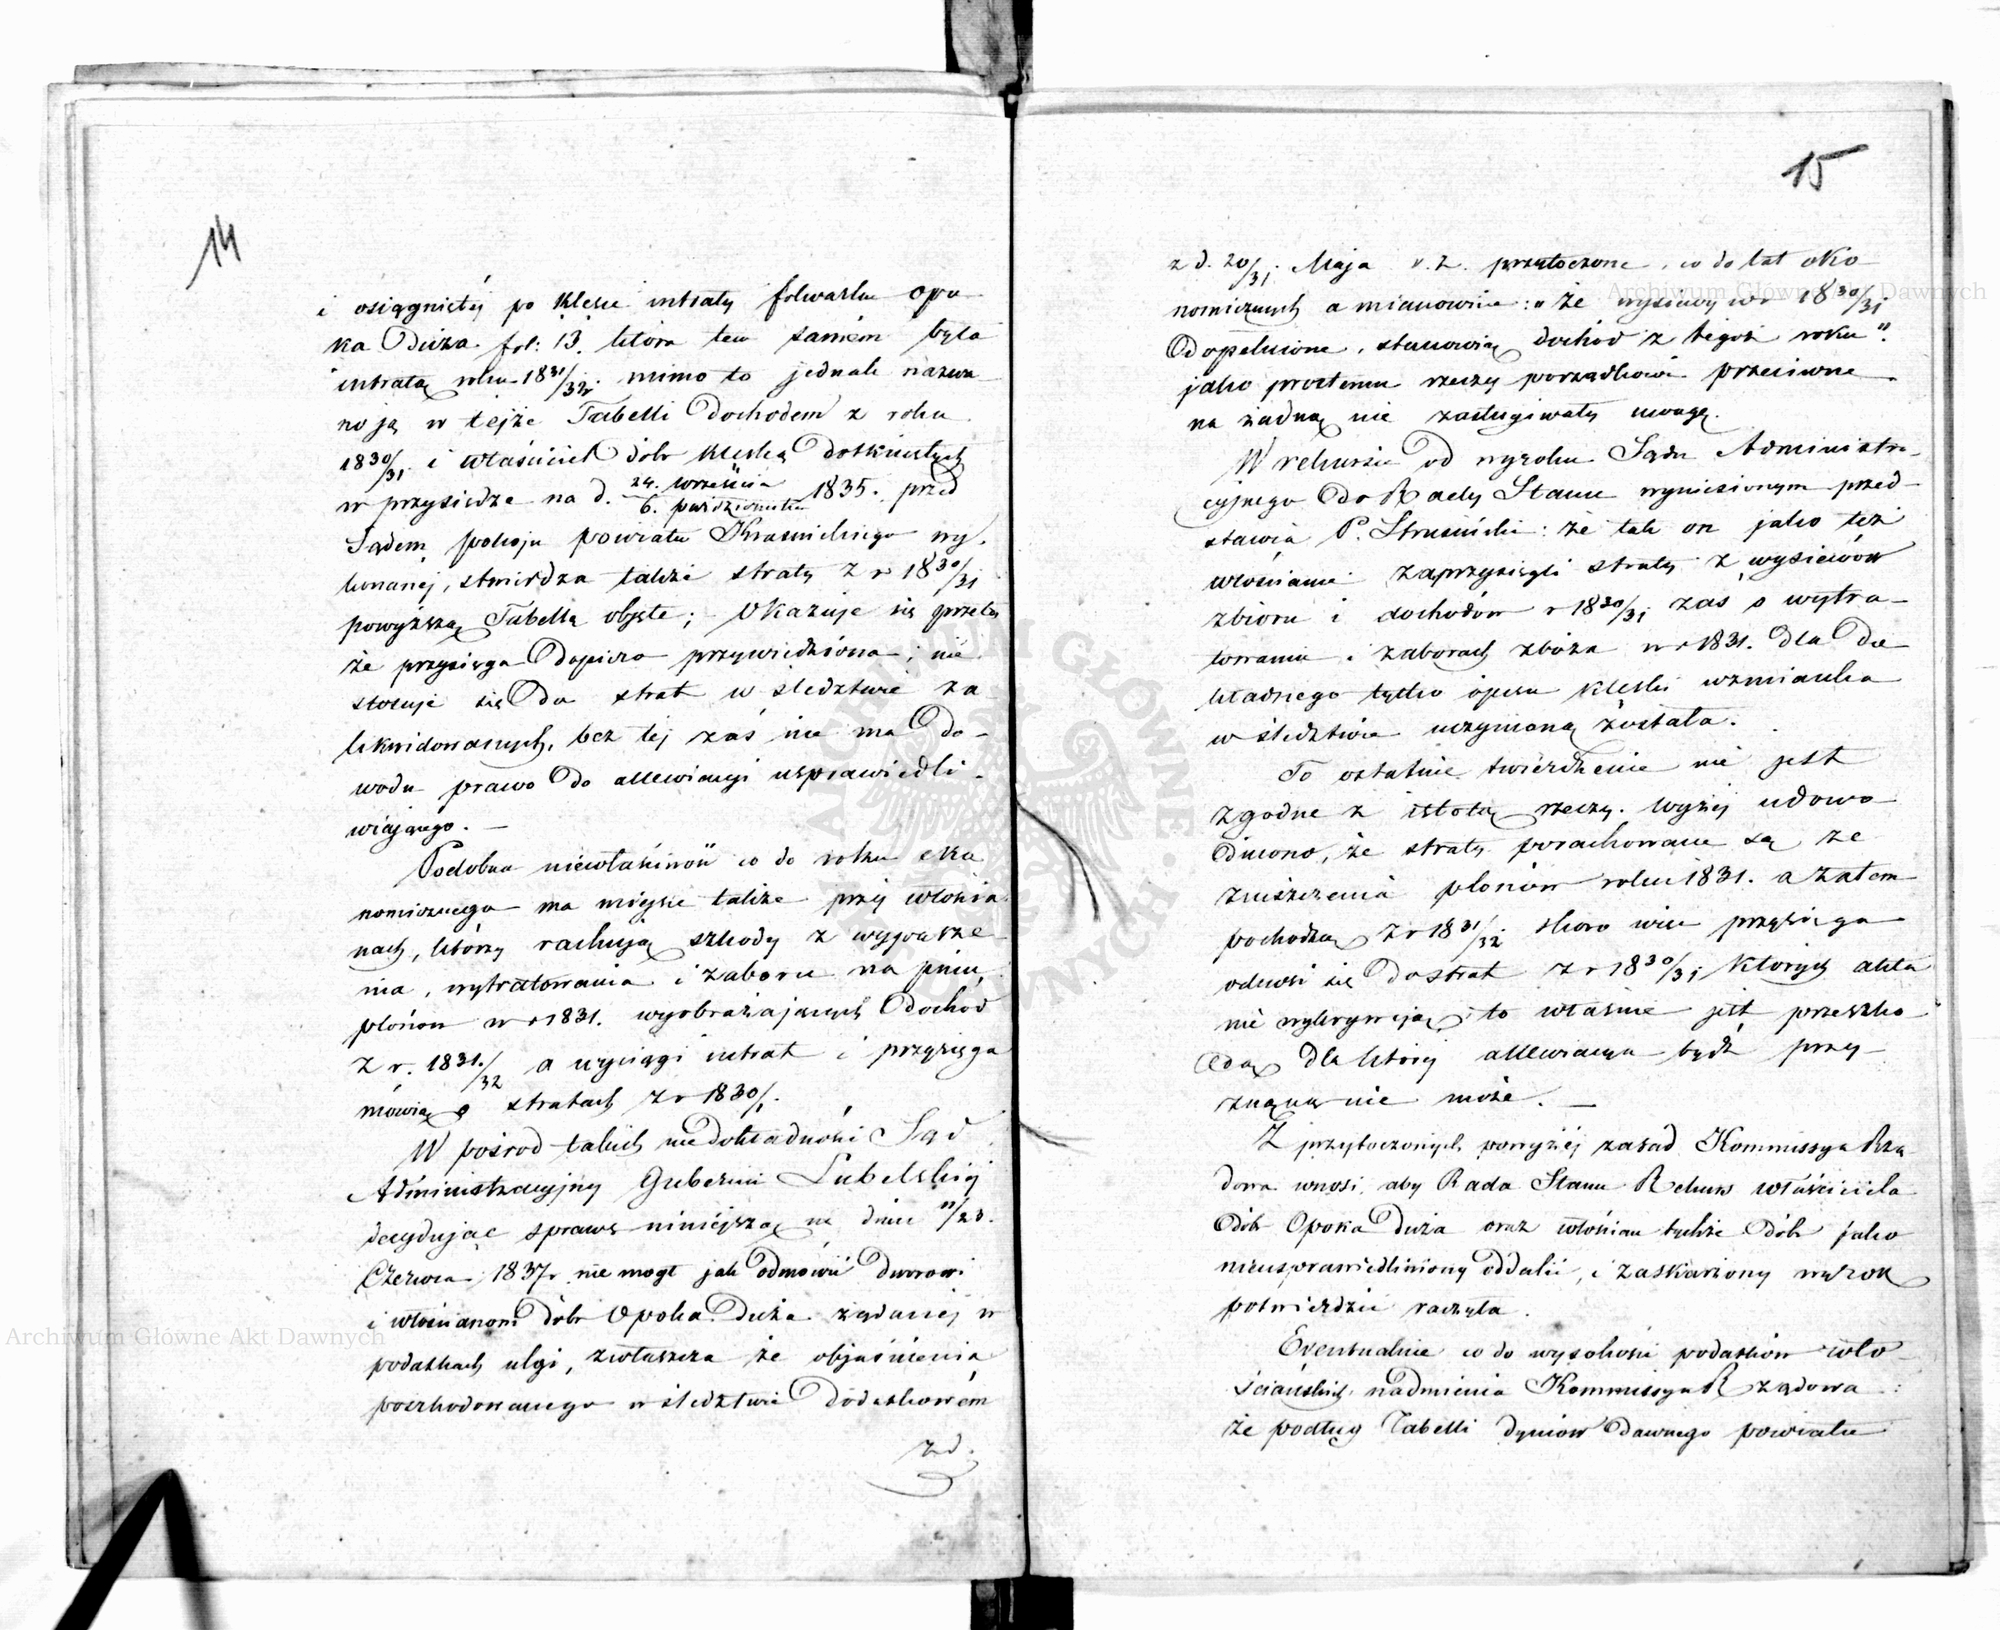 14
i osiągniętéj po klęsce intraty folwarku Opo
ka Duża fol: 13. która tem samém była
intratą roku 1831/32. mimo to jednak nazwa
no ją w tejże Tabelli dochodem z roku
1830/31. i właściciel dóbr klęską dotkniętych
w przysiędze na d. 24. września / 6. października 1835. przed
Sądem pokoju powiatu Kraśnickiego wy-
konanéj, stwierdza także straty z r 1830/31
powyższą Tabellą objęte; Okazuje się przeto
że przysięga dopiero przywiedziona, nie
stosuje się do strat w śledztwie za
likwidowanych, bez tej zaś nie ma do-
wodu prawo do allewiacyi usprawiedli-
wiającego. —
Podobna niewłaściwość co do roku eko
nomicznego ma miejsce także przy włościa
nach, którzy rachują szkody z wypasze
nia, wytratowania i zaboru na pniu,
plonów w r 1831. wyobrażających dochód
z r. 1831./32 a wyciągi intrat i przysięga
mówią o stratach z r 1830/1.
W pośród takich niedokładności Sąd
Administracyjny Gubernii Lubelskiéj
decydując sprawę niniejszą na dniu 11/23.
Czerwca 1837 r nie mógł jak odmówić dworowi
i włościanom dóbr Opoka Duża żądanéj w
podatkach ulgi, zwłaszcza że objaśnienia
poszkodowanego w śledztwie dodatkowém
z d.
15
z d. 20/31. Maja r. z. przytoczone, co do lat eko
nomicznych a mianowicie: „że wysiewy w r 1830/31
dopełnione, stanowią dochód z tegoż roku".
jako prostemu rzeczy porządkowi przeciwne
na żadną nie zasługiwały uwagę.
W rekursie od wyroku Sądu Administra-
cyjnego do Rady Stanu wyniesionym przed-
stawia P. Strusiński: że tak on jako też
włościanie zaprzysięgli straty z wysiewów
zbioru i dochodów r 1830/31 zaś o wytra-
towaniu i zaborach zboża w r 1831. dla do
kładnego tylko opisu klęski wzmianka
w śledztwie uczynioną została.
To ostatnie twierdzenie nie jest
zgodne z istotą rzeczy. wyżéj udowo
dniono, że straty porachowane są ze
zniszczenia plonów roku 1831. a zatem
pochodzą z r 1831/32. skoro więc przysięga
odnosi się do strat z r 1830/31 których akta
nie wykrywają, to właśnie jest przeszko
dą dla któréj allewiacya bydź przy-
znaną nie może. —
Z przytoczonych powyżéj zasad Kommissya Rzą
dowa wnosi, aby Rada Stanu Rekurs właściciela
dóbr Opoka Duża oraz włościan tychże dóbr jako
nieusprawiedliwiony oddalić, i zaskarżony wyrok
potwierdzić raczyła.
Eventualnie co do wysokości podatków wło-
ściańskich nadmienia Kommissya Rządowa:
że podług Tabelli dymów dawnego powiatu
Archiwum Główne Akt Dawnych
Archiwum Główne Akt Dawnych